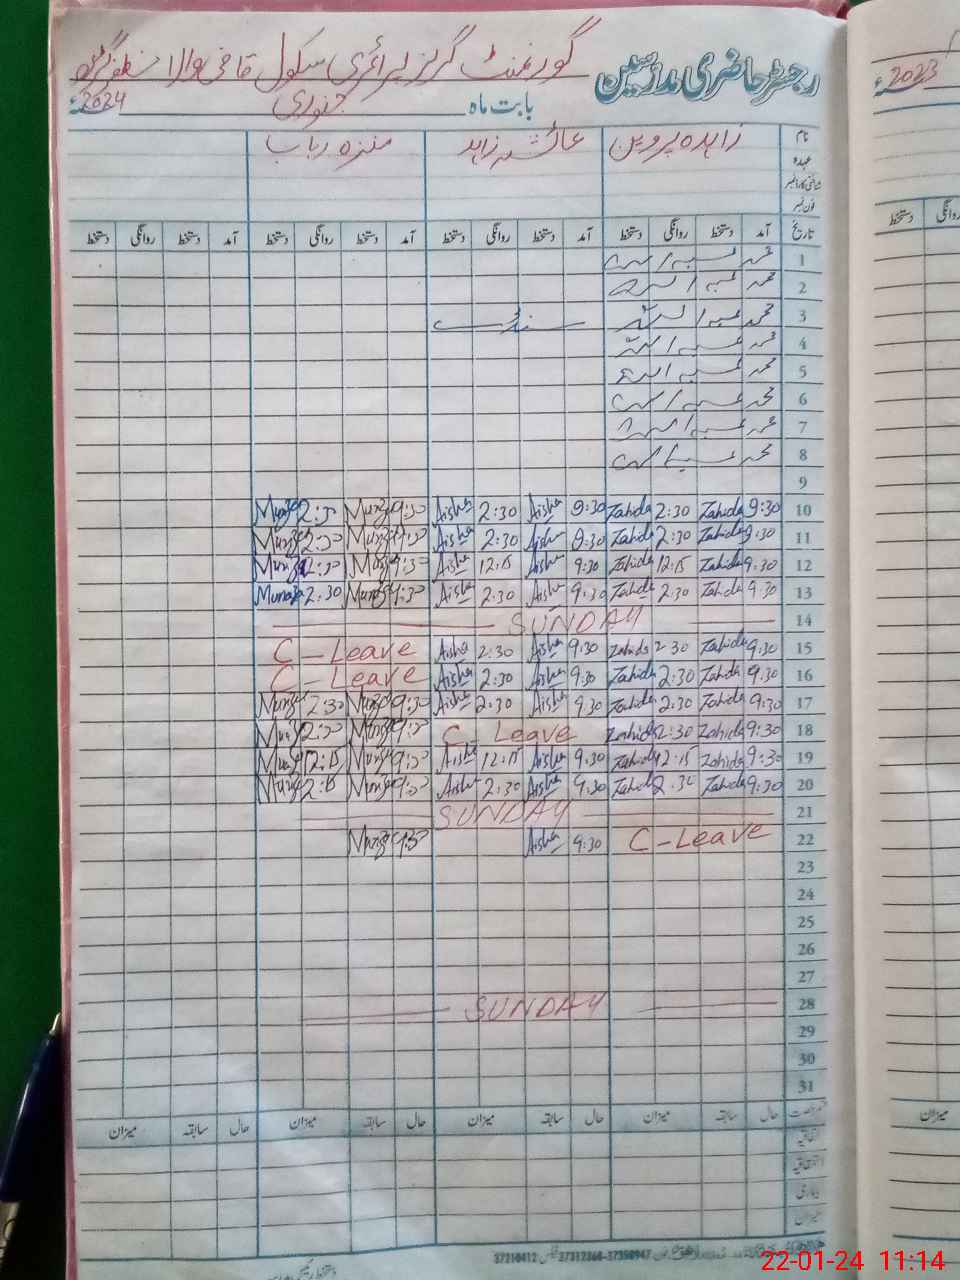 رجسٹر حاضری مدرسین گورنمنٹ گرلز پرائمری سکول قاضی والا مظفرگڑھ
بابت ماہ جنوری 2024ء
2023ء
نام زاہدہ پروین عائشہ زاہد منزہ رباب
عہدہ
شناختی کارڈ نمبر
فون نمبر
تاریخ آمد دستخط روانگی دستخط آمد دستخط روانگی دستخط آمد دستخط روانگی دستخط آمد دستخط روانگی دستخط
دستخط روانگی
1
2
3
4
5
6
7
8
9
10 9:30 Zahida 2:30 Zahida 9:30 Aisha 2:30 Aisha 9:30 Munza 2:30 Munza
11 9:30 Zahida 2:30 Zahida 9:30 Aisha 2:30 Aisha 9:30 Munza 2:30 Munza
12 9:30 Zahida 12:15 Zahida 9:30 Aisha 12:15 Aisha 9:30 Munza 2:30 Munza
13 9:30 Zahida 2:30 Zahida 9:30 Aisha 2:30 Aisha 9:30 Munza 2:30 Munaza
14 SUNDAY
15 9:30 Zahida 2:30 Zahida 9:30 Aisha 2:30 Aisha C-Leave
16 9:30 Zahida 2:30 Zahida 9:30 Aisha 2:30 Aisha C-Leave
17 9:30 Zahida 2:30 Zahida 9:30 Aisha 2:30 Aisha 9:30 Munza 2:30 Munza
18 9:30 Zahida 2:30 Zahida C-Leave 9:30 Munza 2:30 Munza
19 9:30 Zahida 12:15 Zahida 9:30 Aisha 12:15 Aisha 9:30 Munza 12:15 Munza
20 9:30 Zahida 2:30 Zahida 9:30 Aisha 2:30 Aisha 9:30 Munza 2:15 Munza
21 SUNDAY
22 C-Leave 9:30 Aisha 9:30 Munza
23
24
25
26
27
28 SUNDAY
29
30
31
حال سابقہ میزان حال سابقہ میزان حال سابقہ میزان حال سابقہ میزان
میزان
اتفاقیہ
بیماری
میزان
37310412 37312368-37358947
22-01-24 11:14